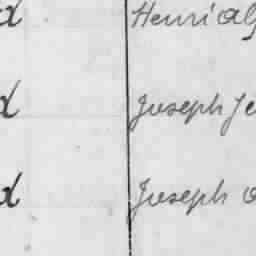 d Henri Al
d Joseph Je
d Joseph